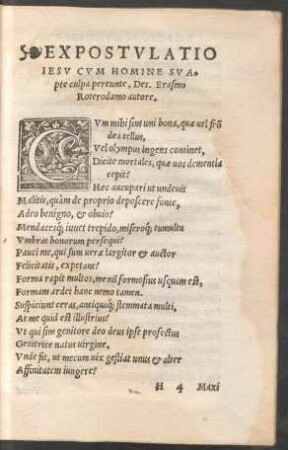 EXPOSTVLATIO
IESV CVM HOMINE SVA-
pte culpa pereunte, Des. Erasmo
Roterodamo autore.
CVm mihi sint uni bona, quæ uel frõ
dea tellus,
Vel olympus ingens continet,
Dicite mortales, quæ uos dementia
cepit?
Hæc aucupari ut undeuis
Malitis, quàm de proprio deposcere fonte,
Adeo benigno, & obuio?
Mendacesq́; iuuet trepido, miseroq́; tumultu
Vmbras bonorum persequi?
Pauci me, qui sum ueræ largitor & auctor
Felicitatis, expetant?
Forma rapit multos, me nil formosius usquam est,
Formam ardet hanc nemo tamen.
Suspiciunt ceras, antiquaq́; stemmata multi,
At me quid est illustrius?
Vt qui sim genitore deo deus ipse profectus
Genitrice natus uirgine.
Vnde fit, ut mecum uix gestiat unus & alter
Affinitatem iungere?
H 4 MAXI